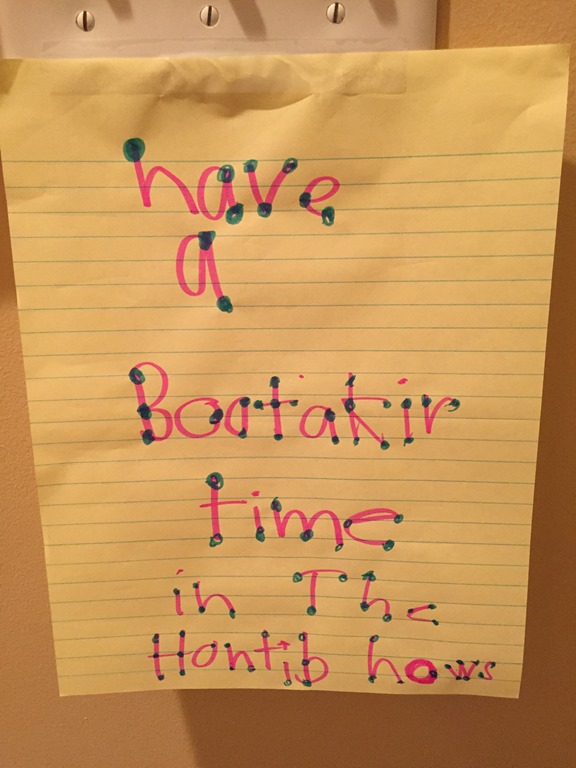 have
a
Bootakir
time
in The
Hontib hows